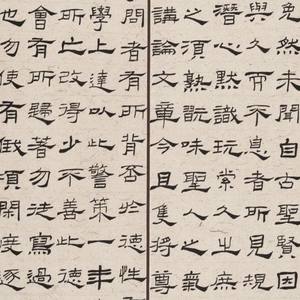 免然未聞自古聖賢因
與久而不息者所見規
潛心默識玩索久之庶
之須熟翫味聖人之氣
講論文章今且隻將尊
問者有所背否於德性
學上達以此警策一年
所亡改得少不善此德
會有所歸著勿徒寫過
也勿使有俄頃閑度逐